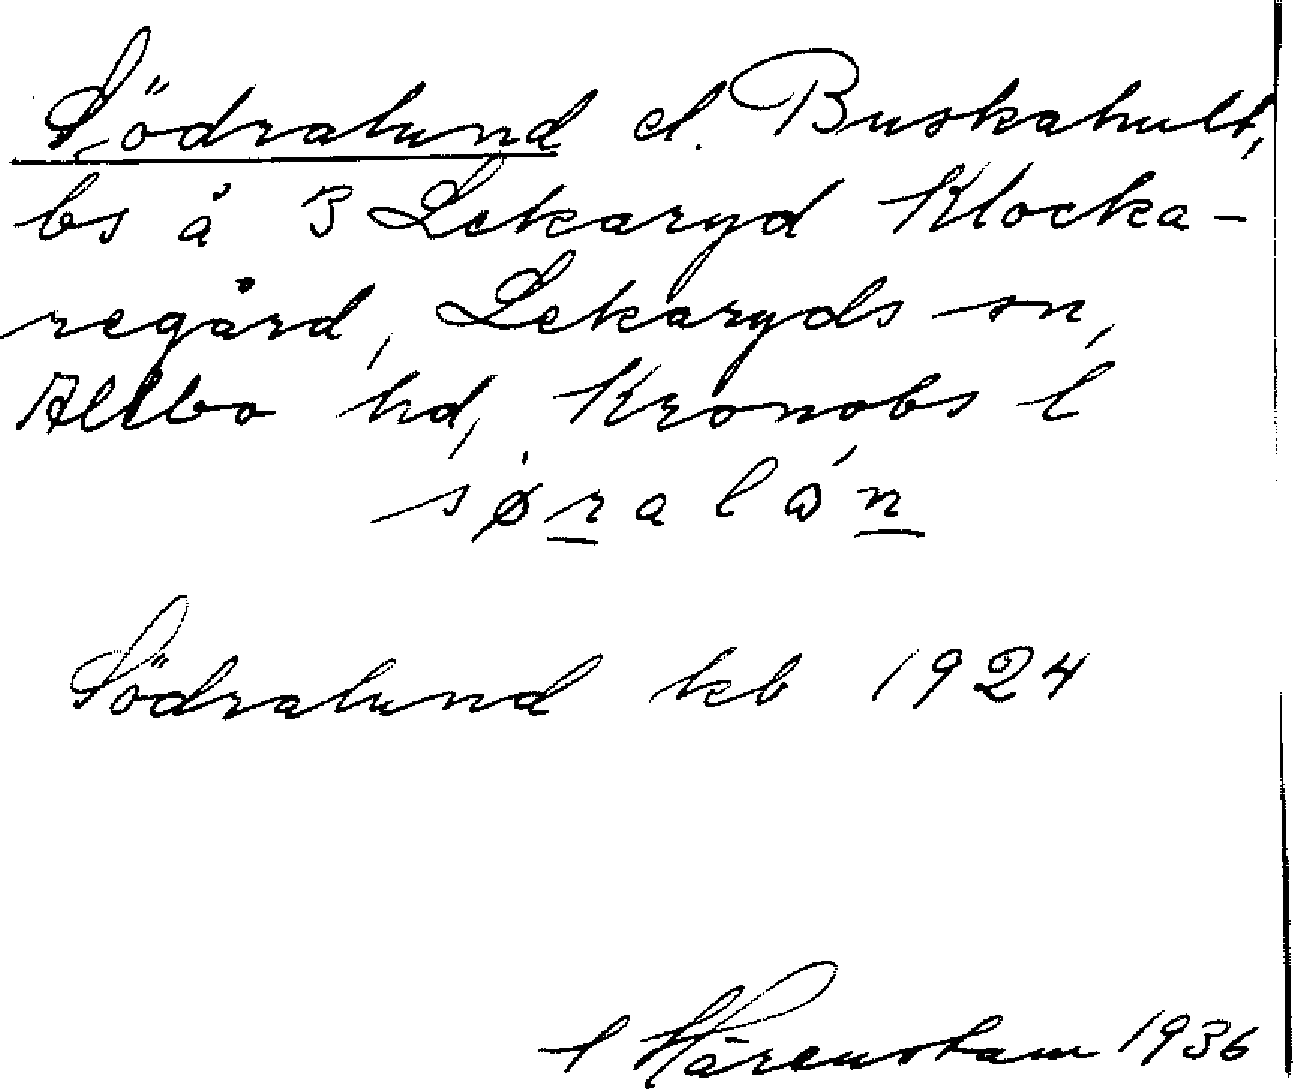 Södralund el. Buskahult,
bs å 3 Lekaryd Klocka-
regård, Lekaryds sn,
Allbo hd, Kronobs l
sǿralón
Södralund kb 1924
Härenstam 1936